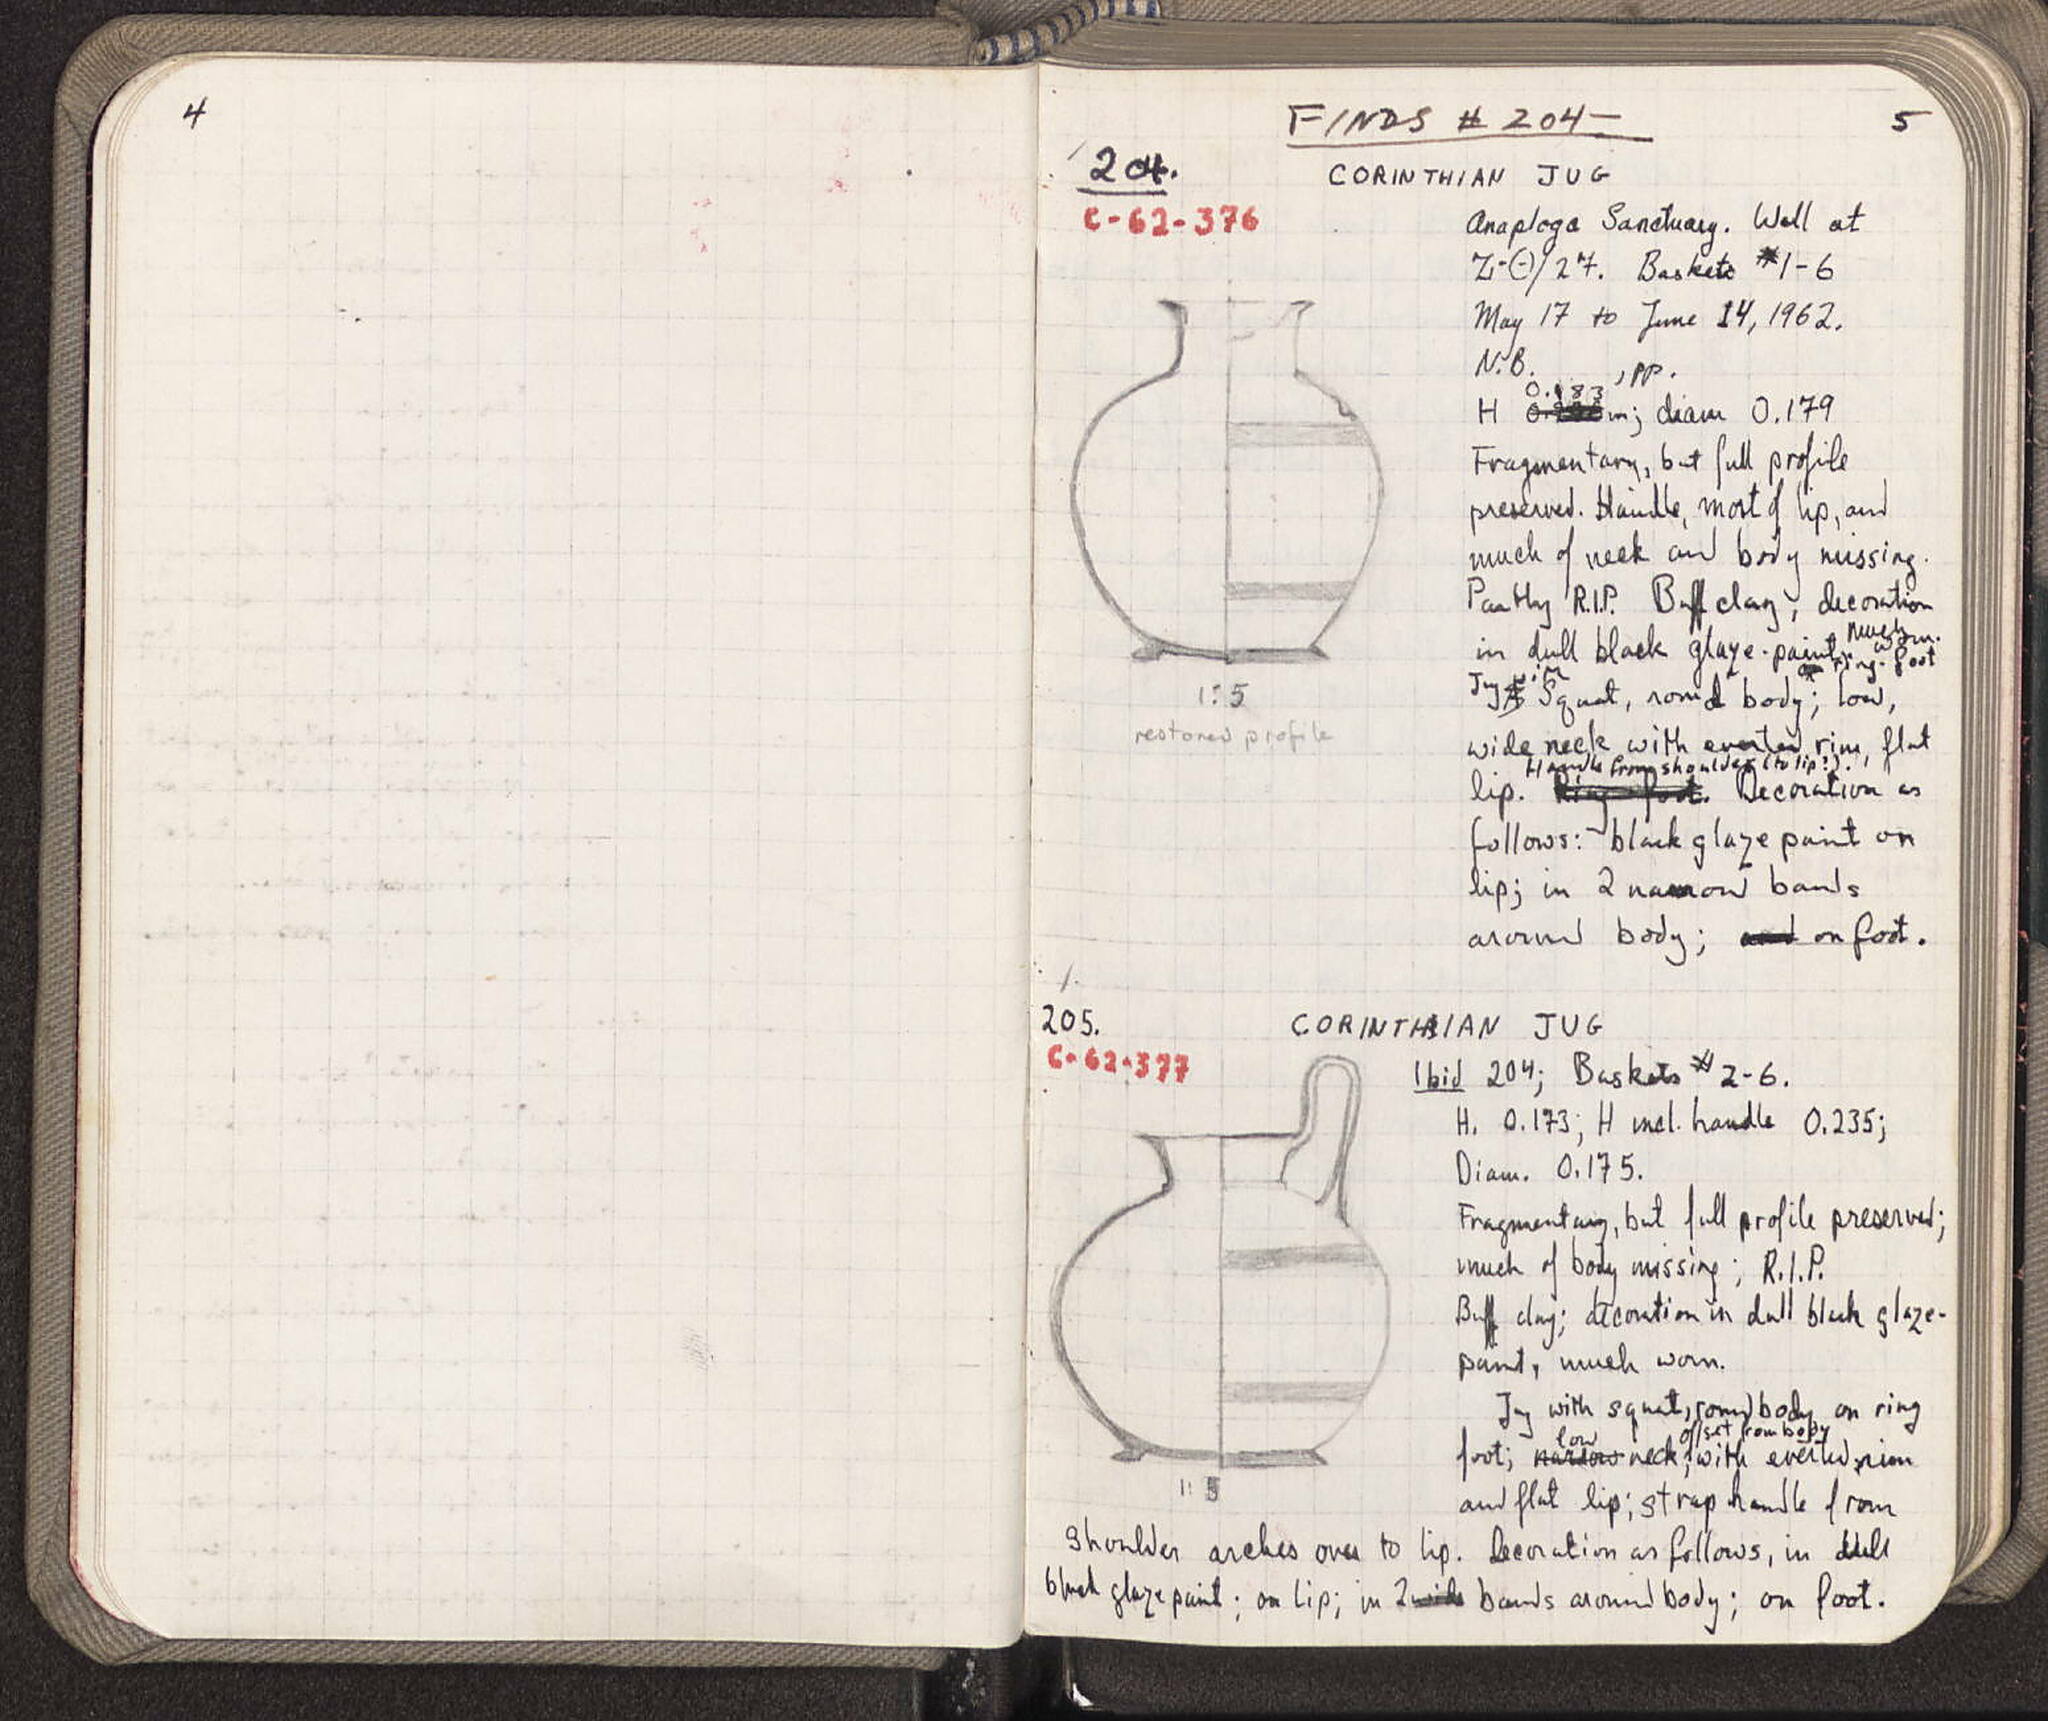 4
FINDS # 204— 5
204. CORINTHIAN JUG
C-62-376
Anaploga Sanctuary. Well at
Z-Θ/27. Baskets #1-6
May 17 to June 14, 1962.
N.B. , pp.
0.183
H m; diam 0.179
Fragmentary, but full profile
preserved. Handle, most of lip, and
much of neck and body missing.
Partly R.I.P. Buff clay; decoration
in dull black glaze-paint, much worn.
on ring-foot
Jug with Squat, round body; low,
wide neck with everted rim, flat
Handle from shoulder (to lip?).
lip. Ring foot. Decoration as
follows: black glaze paint on
lip; in 2 narrow bands
around body; and on foot.
1:5
restored profile
205. CORINTHIAN JUG
C-62-377
Ibid 204; Baskets #2-6.
H. 0.173; H incl. handle 0.235;
Diam. 0.175.
Fragmentary, but full profile preserved;
much of body missing; R.I.P.
Buff clay; decoration in dull black glaze-
paint, much worn.
Jug with squat, round body on ring
low offset from body
foot; narrow neck, with everted rim
and flat lip; strap handle from
shoulder arches over to lip. Decoration as follows, in dull
black glaze paint; on lip; in 2 wide bands around body; on foot.
1:5